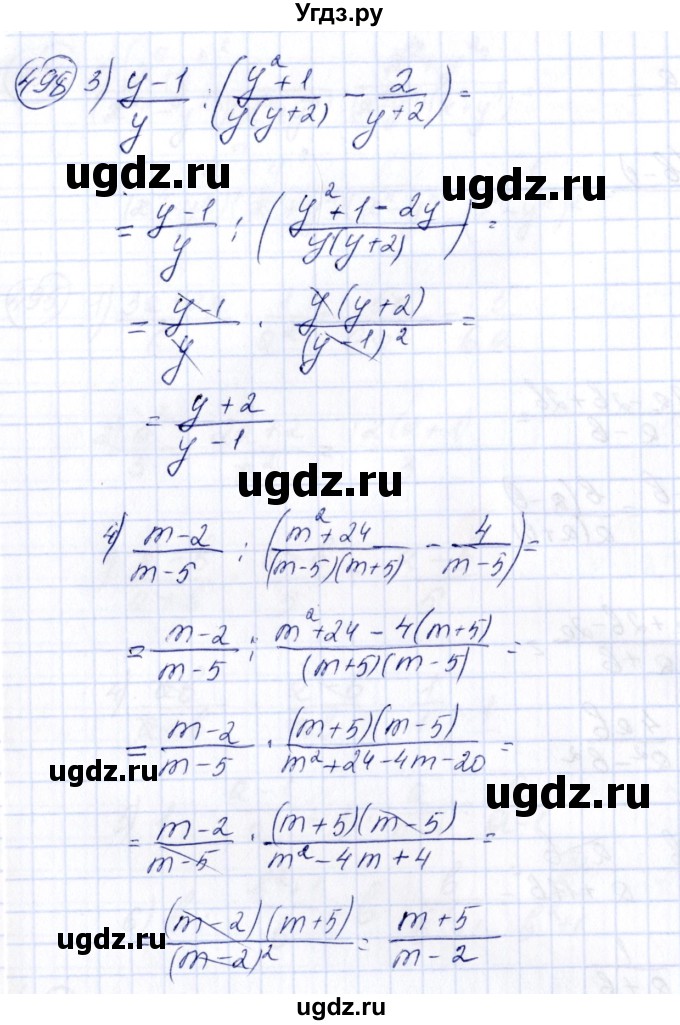 Угдз.ру
498 3) (y-1)/y : ((y²+1)/(y(y+2)) - 2/(y+2)) =
ugdz.ru ugdz.ru
= (y-1)/y : ((y²+1-2y)/(y(y+2))) =
= (y-1)/y · (y(y+2))/((y-1)²) =
= (y+2)/(y-1)
ugdz.ru ugdz.ru
4) (m-2)/(m-5) : ((m²+24)/((m-5)(m+5)) - 4/(m-5)) =
= (m-2)/(m-5) : (m²+24-4(m+5))/((m+5)(m-5)) =
= (m-2)/(m-5) · ((m+5)(m-5))/(m²+24-4m-20) =
ugdz.ru ugdz.ru
= (m-2)/(m-5) · ((m+5)(m-5))/(m²-4m+4) =
= ((m-2)(m+5))/((m-2)²) = (m+5)/(m-2)
ugdz.ru ugdz.ru
ugdz.ru